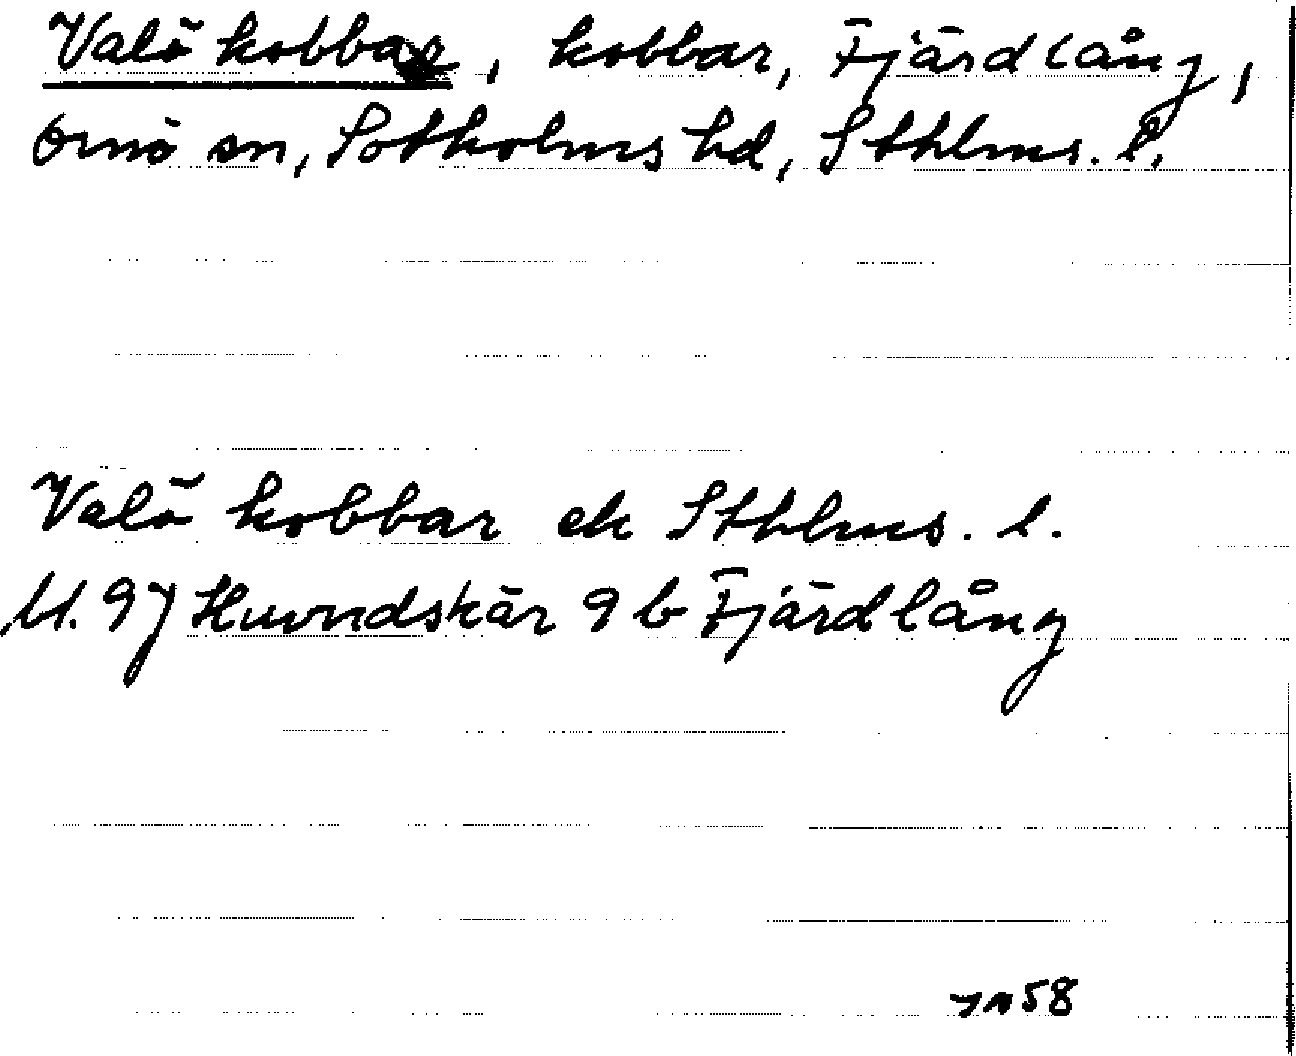 Valö kobbar, kobbar, Fjärdlång,
Ornö sn, Sotholms hd, Sthlms. l.
Valö kobbar ek Sthlms. l.
U. 97 Huvudskär 9 b Fjärdlång
58